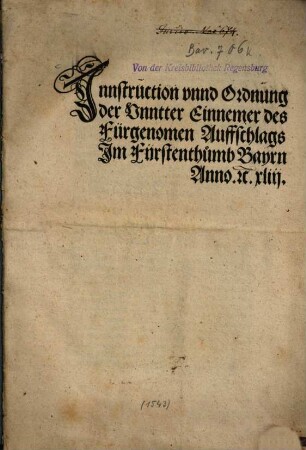 Bav. 766k
Von der Kreisbibliothek Regensburg
Innstruction vnnd Ordnung
der Vnntter Einnemer des
Fürgenomen Auffschlags
Im Fürstenthůmb Bayrn
Anno. ꝛc. xliij.
(1543)